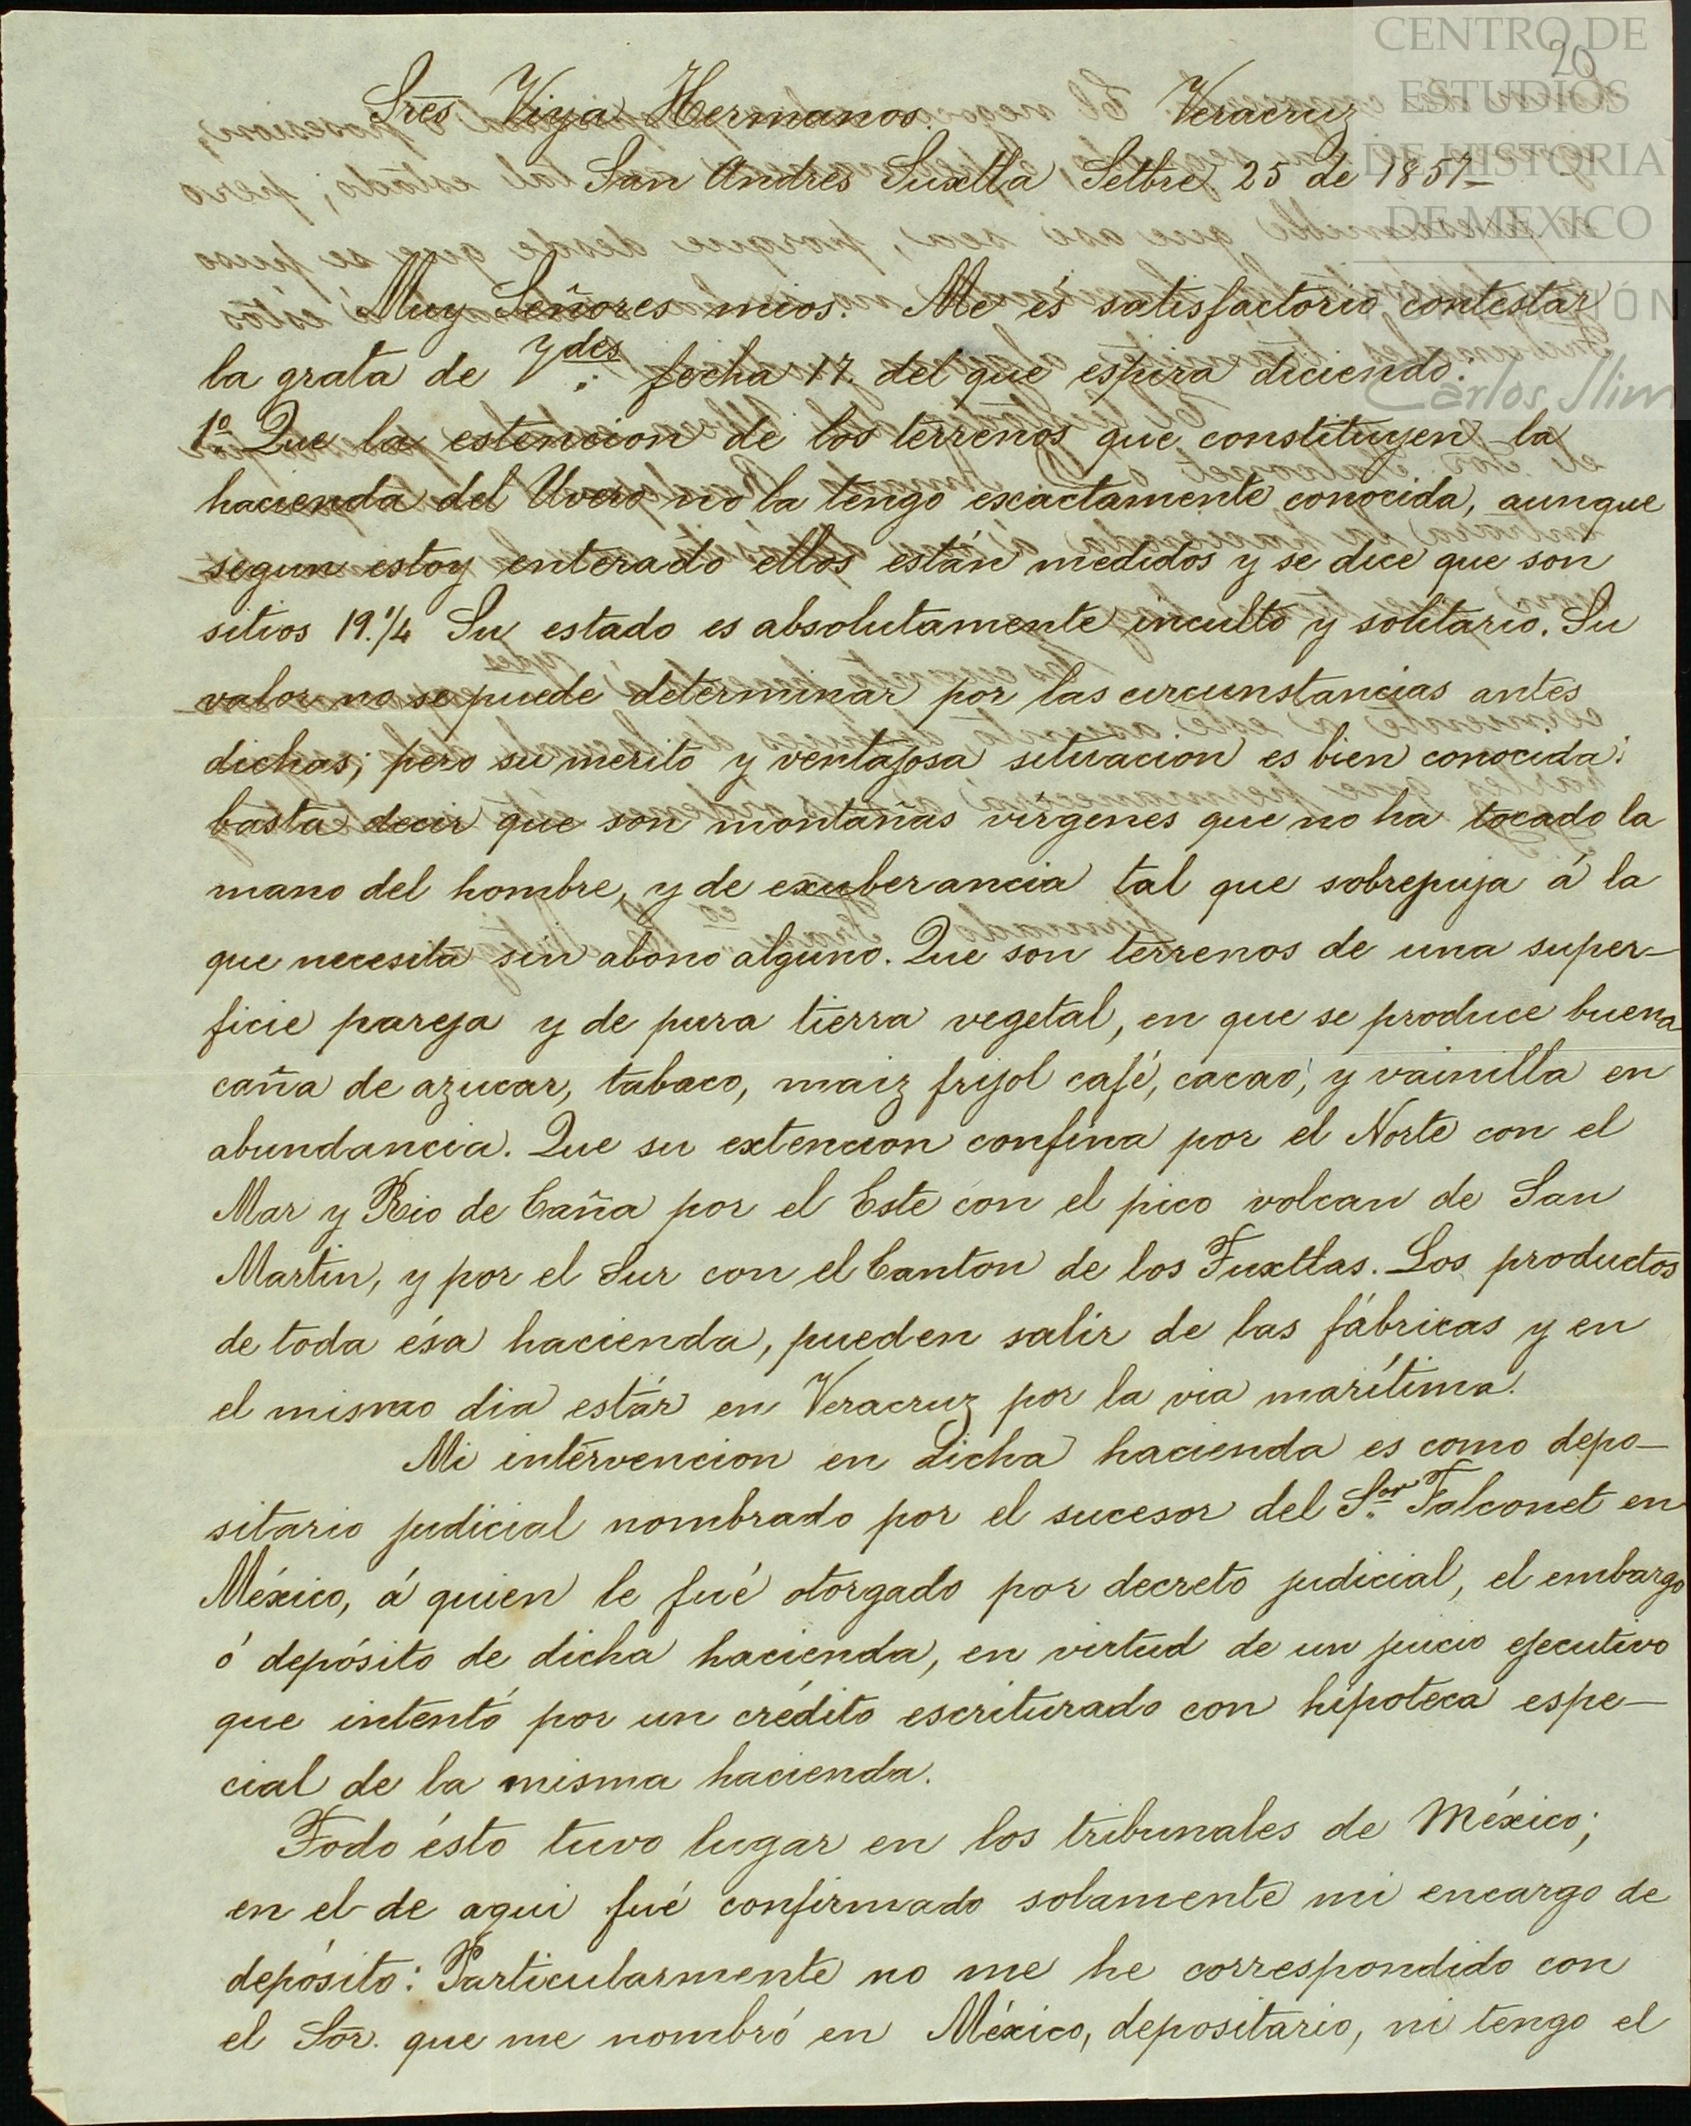 20
CENTRO DE
ESTUDIOS
DE HISTORIA
DE MEXICO
FUNDACIÓN
Carlos Slim
Sres Viya Hermanos. Veracruz
San Andres Tuxtla Setbre 25 de 1857-
Muy Señores mios. Me es satisfactorio contestar
la grata de Vdes. fecha 17. del que espira diciendo.
1º Que la estencion de los terrenos que constituyen la
hacienda del Uvero no la tengo escactamente conocida, aunque
segun estoy enterado ellos están medidos y se dice que son
sitios 19.1/4 Su estado es absolutamente inculto y solitario. Su
valor no se puede determinar por las circunstancias antes
dichas; pero su merito y ventajosa situacion es bien conocida:
basta decir que son montañas virgenes que no ha tocado la
mano del hombre, y de exuberancia tal que sobrepuja á la
que necesita sin abono alguno. Que son terrenos de una super-
ficie pareja y de pura tierra vegetal, en que se produce buena
caña de azucar, tabaco, maiz frijol café, cacao, y vainilla en
abundancia. Que su extencion confina por el Norte con el
Mar y Rio de Caña por el Este con el pico volcan de San
Martin, y por el Sur con el Canton de los Tuxtlas. Los productos
de toda ésa hacienda, pueden salir de las fábricas y en
el mismo dia estár en Veracruz por la via marítima.
Mi intervencion en dicha hacienda es como depo-
sitario judicial nombrado por el sucesor del Sor. Falconet en
México, á quien le fué otorgado por decreto judicial, el embargo
ó depósito de dicha hacienda, en virtud de un juicio ejecutivo
que intentó por un crédito escriturado con hipoteca espe-
cial de la misma hacienda.
Todo ésto tuvo lugar en los tribunales de México;
en el de aqui fué confirmado solamente mi encargo de
depósito: Particularmente no me he correspondido con
el Sor. que me nombró en México, depositario, ni tengo el